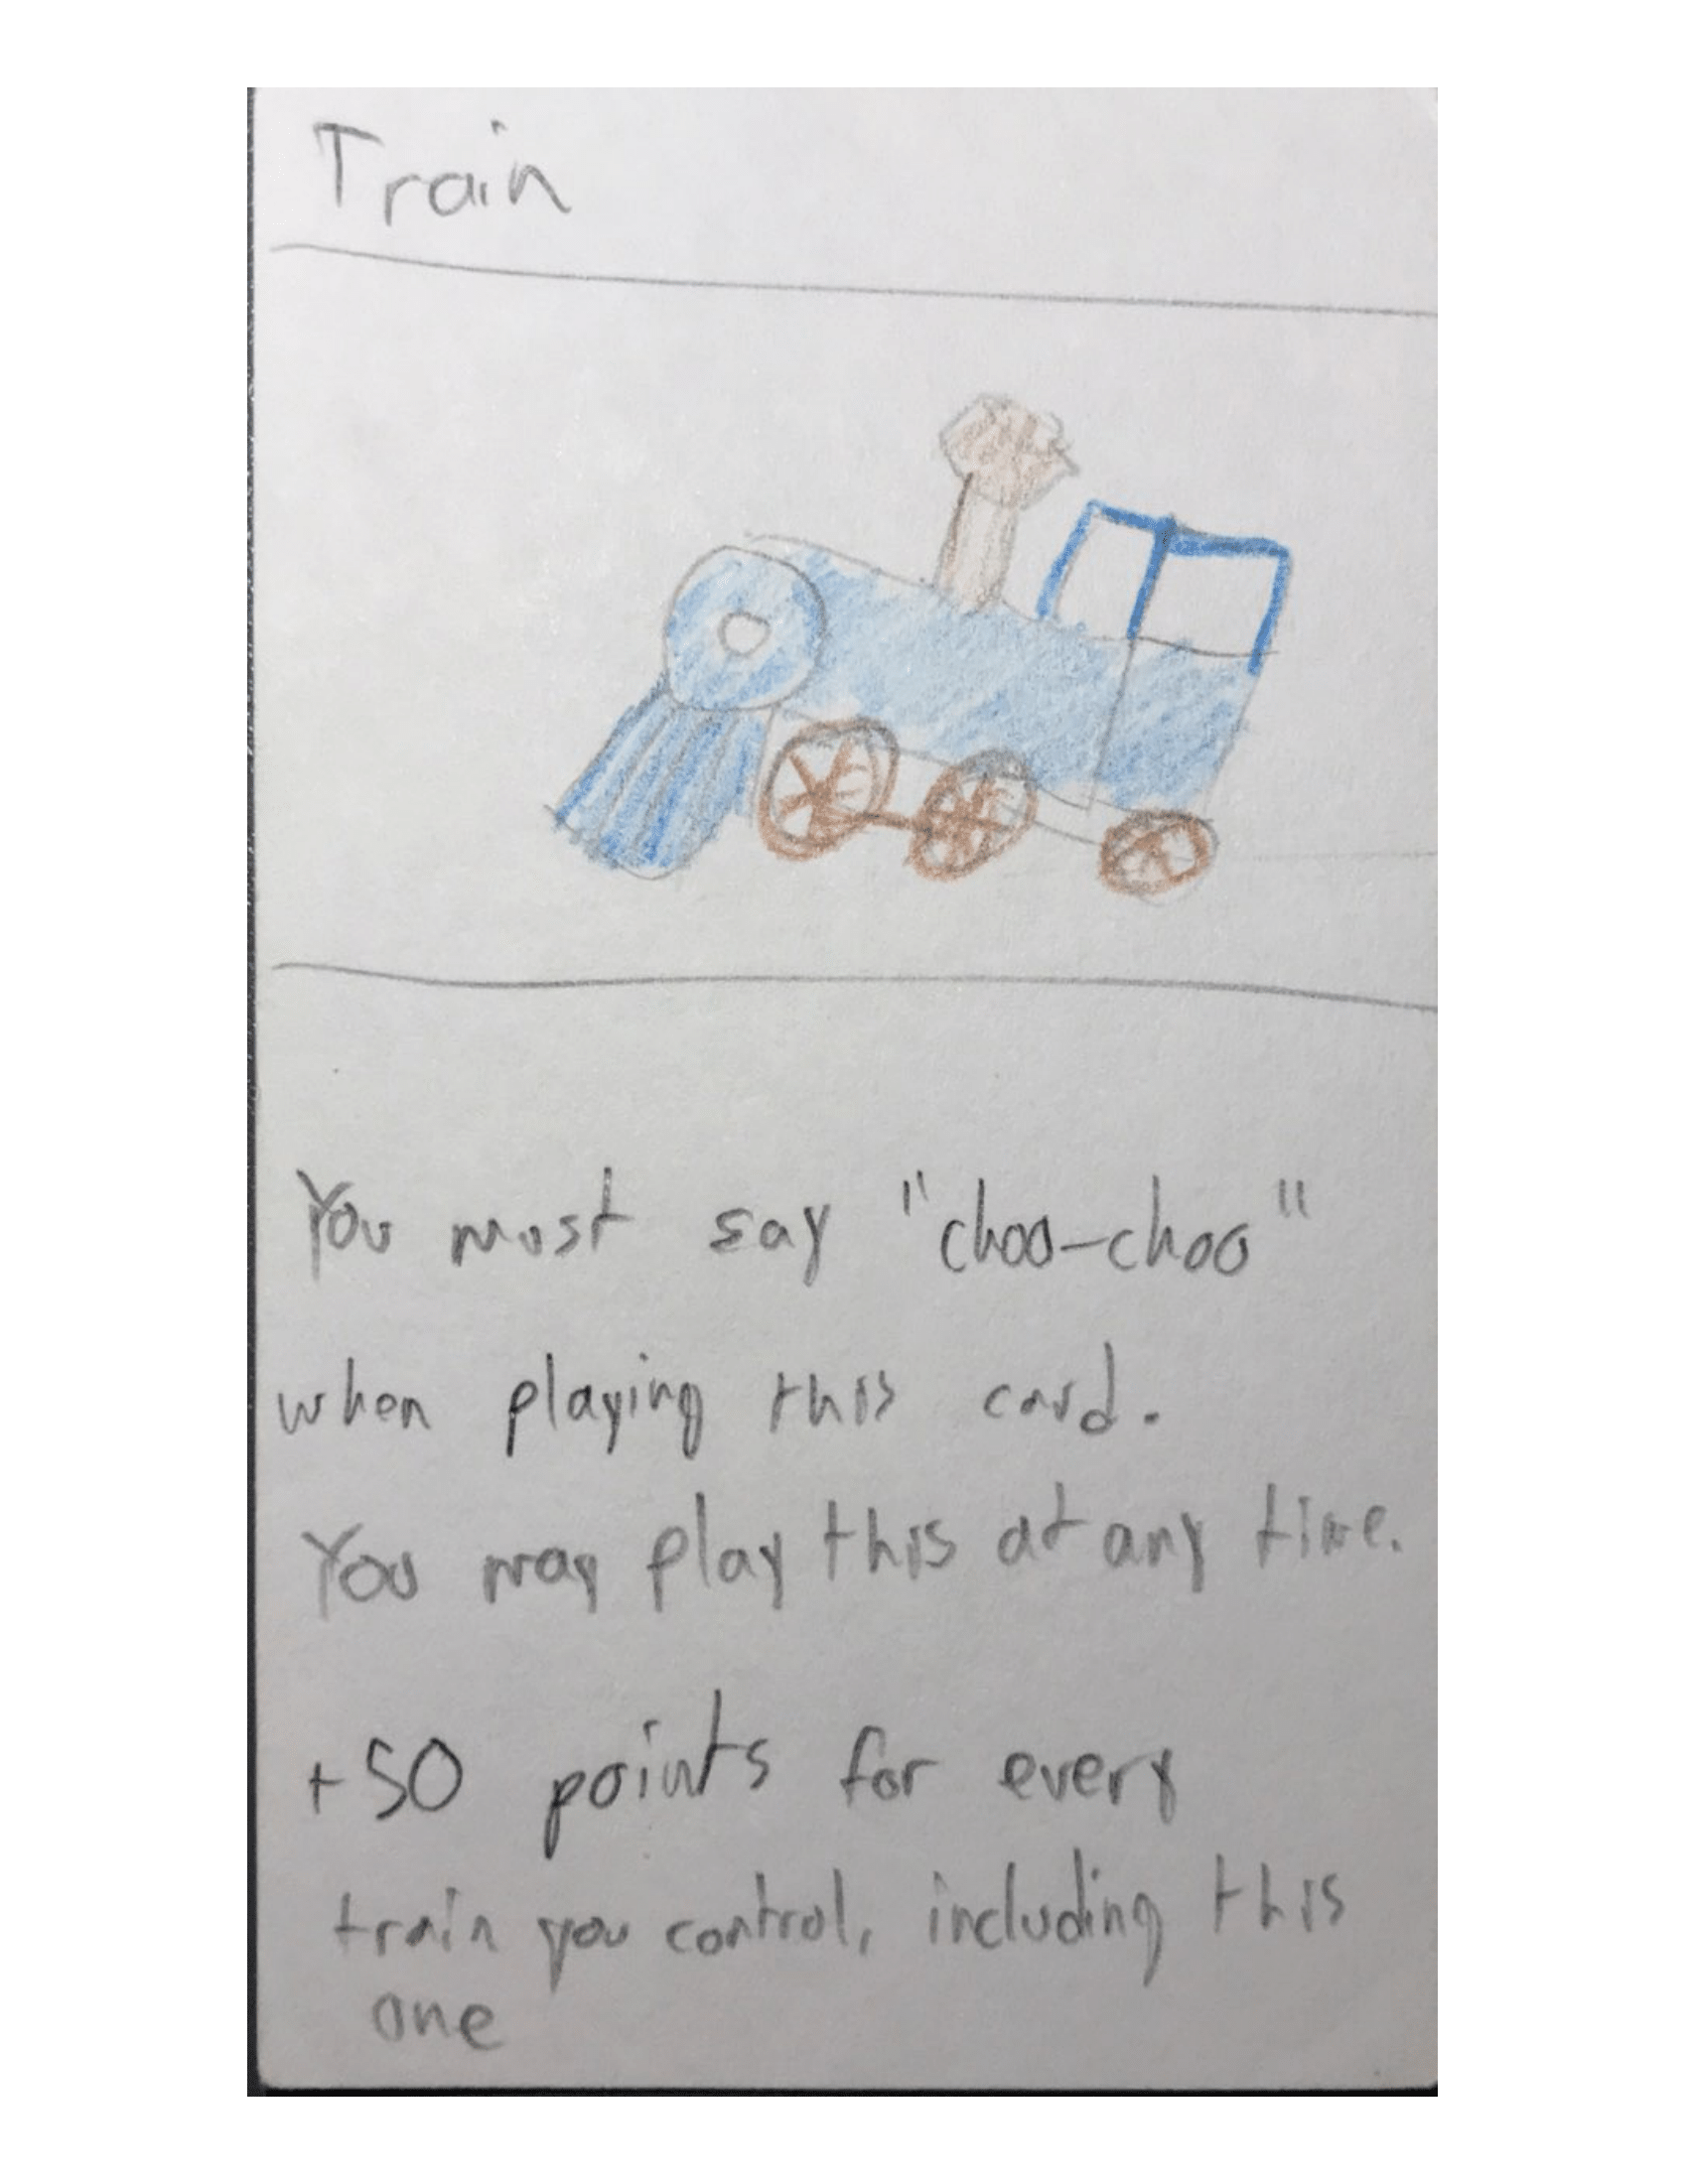 Train
You must say "choo-choo"
when playing this card.
You may play this at any time.
+50 points for every
train you control, including this
one